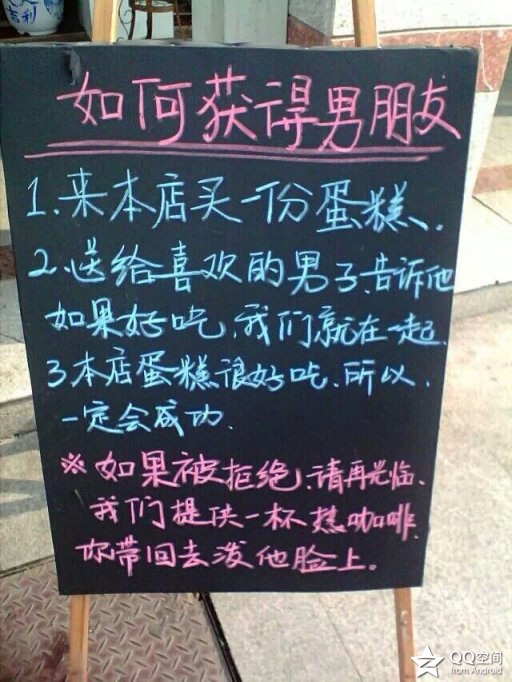 吉利
如何获得男朋友
1.来本店买一份蛋糕.
2.送给喜欢的男子.告诉他
如果好吃.我们就在一起.
3本店蛋糕很好吃.所以.
一定会成功.
※如果被拒绝.请再光临.
我们提供一杯热咖啡.
你带回去泼他脸上。
QQ空间
from Android